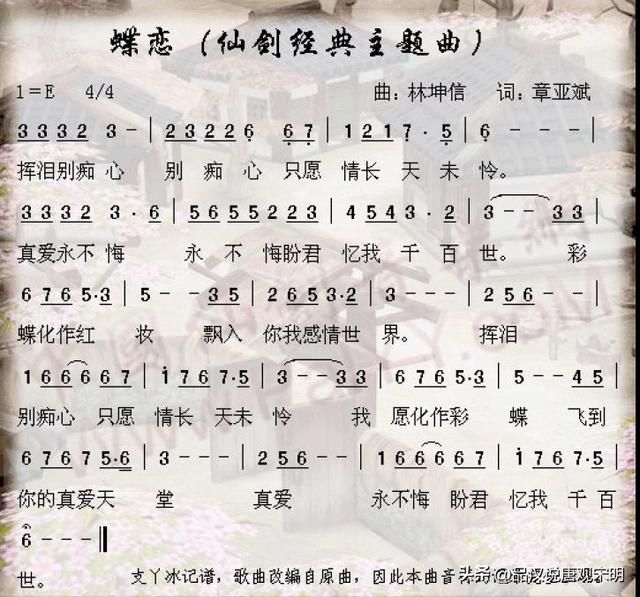 蝶恋（仙剑经典主题曲）
1=E 4/4 曲：林坤信 词：章亚斌
3 3 3 2 3 - | 2 3 2 2 6 6 7 | 1 2 1 7 · 5 | 6 - - - |
挥泪别痴心 别痴心只愿 情长天未怜。
3 3 3 2 3 · 6 | 5 6 5 5 2 2 3 | 4 5 4 3 · 2 | 3 - - 3 3 |
真爱永不悔 永不悔盼君 忆我千百世。 彩
6 7 6 5·3 | 5 - - 3 5 | 2 6 5 3·2 | 3 - - - | 2 5 6 - - |
蝶化作红 妆 飘入 你我感情世 界。 挥泪
1 6 6 6 6 7 | 1 7 6 7·5 | 3 - - 3 3 | 6 7 6 5·3 | 5 - - 4 5 |
别痴心 只愿 情长 天未 怜 我 愿化作彩 蝶 飞到
6 7 6 7 5·6 | 3 - - - | 2 5 6 - - | 1 6 6 6 6 7 | 1 7 6 7·5 |
你的真爱天 堂 真爱 永不悔 盼君 忆我 千百
6 - - - ‖
世。 支丫冰记谱，歌曲改编自原曲，因此本曲音
头条@品汉悦唐观宋明